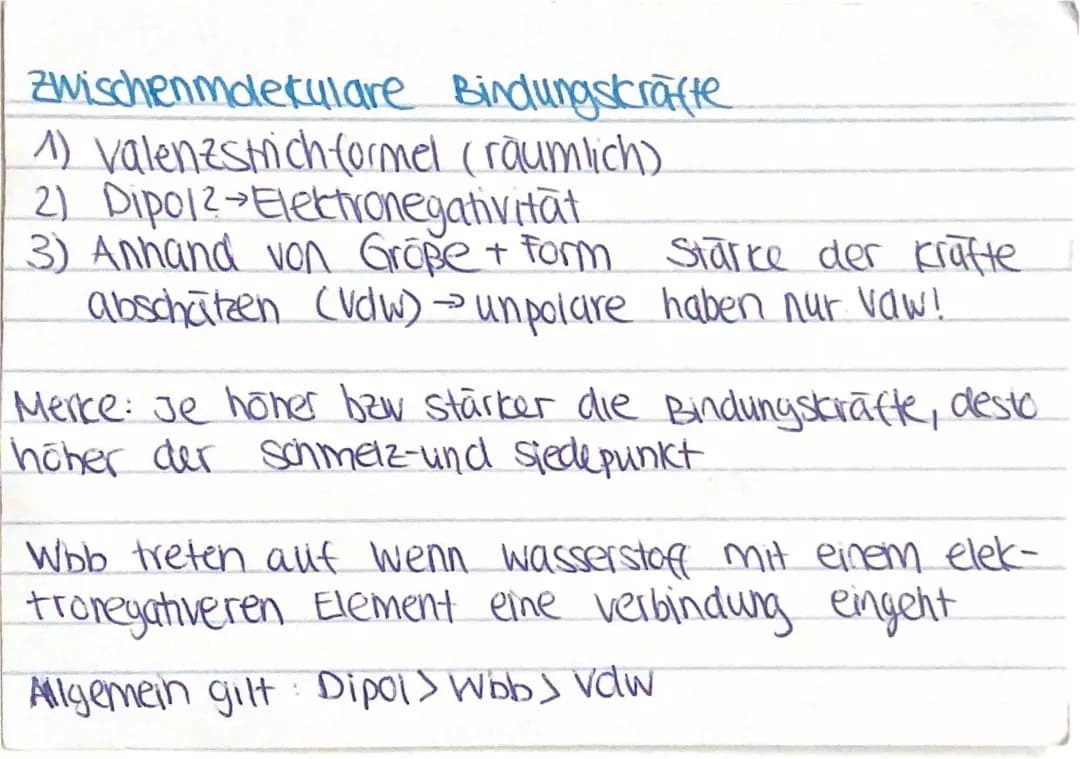 Zwischenmolekulare Bindungskräfte
1) Valenzstrichformel (räumlich)
2) Dipol? → Elektronegativität
3) Anhand von Größe + Form Stärke der Kräfte
abschätzen (Vdw) → unpolare haben nur Vdw!
Merke: Je höher bzw stärker die Bindungskräfte, desto
höher der Schmelz-und Siedepunkt
Wbb treten auf wenn wasserstoff mit einem elek-
tronegativeren Element eine verbindung eingeht
Allgemein gilt: Dipol > Wbb > Vdw